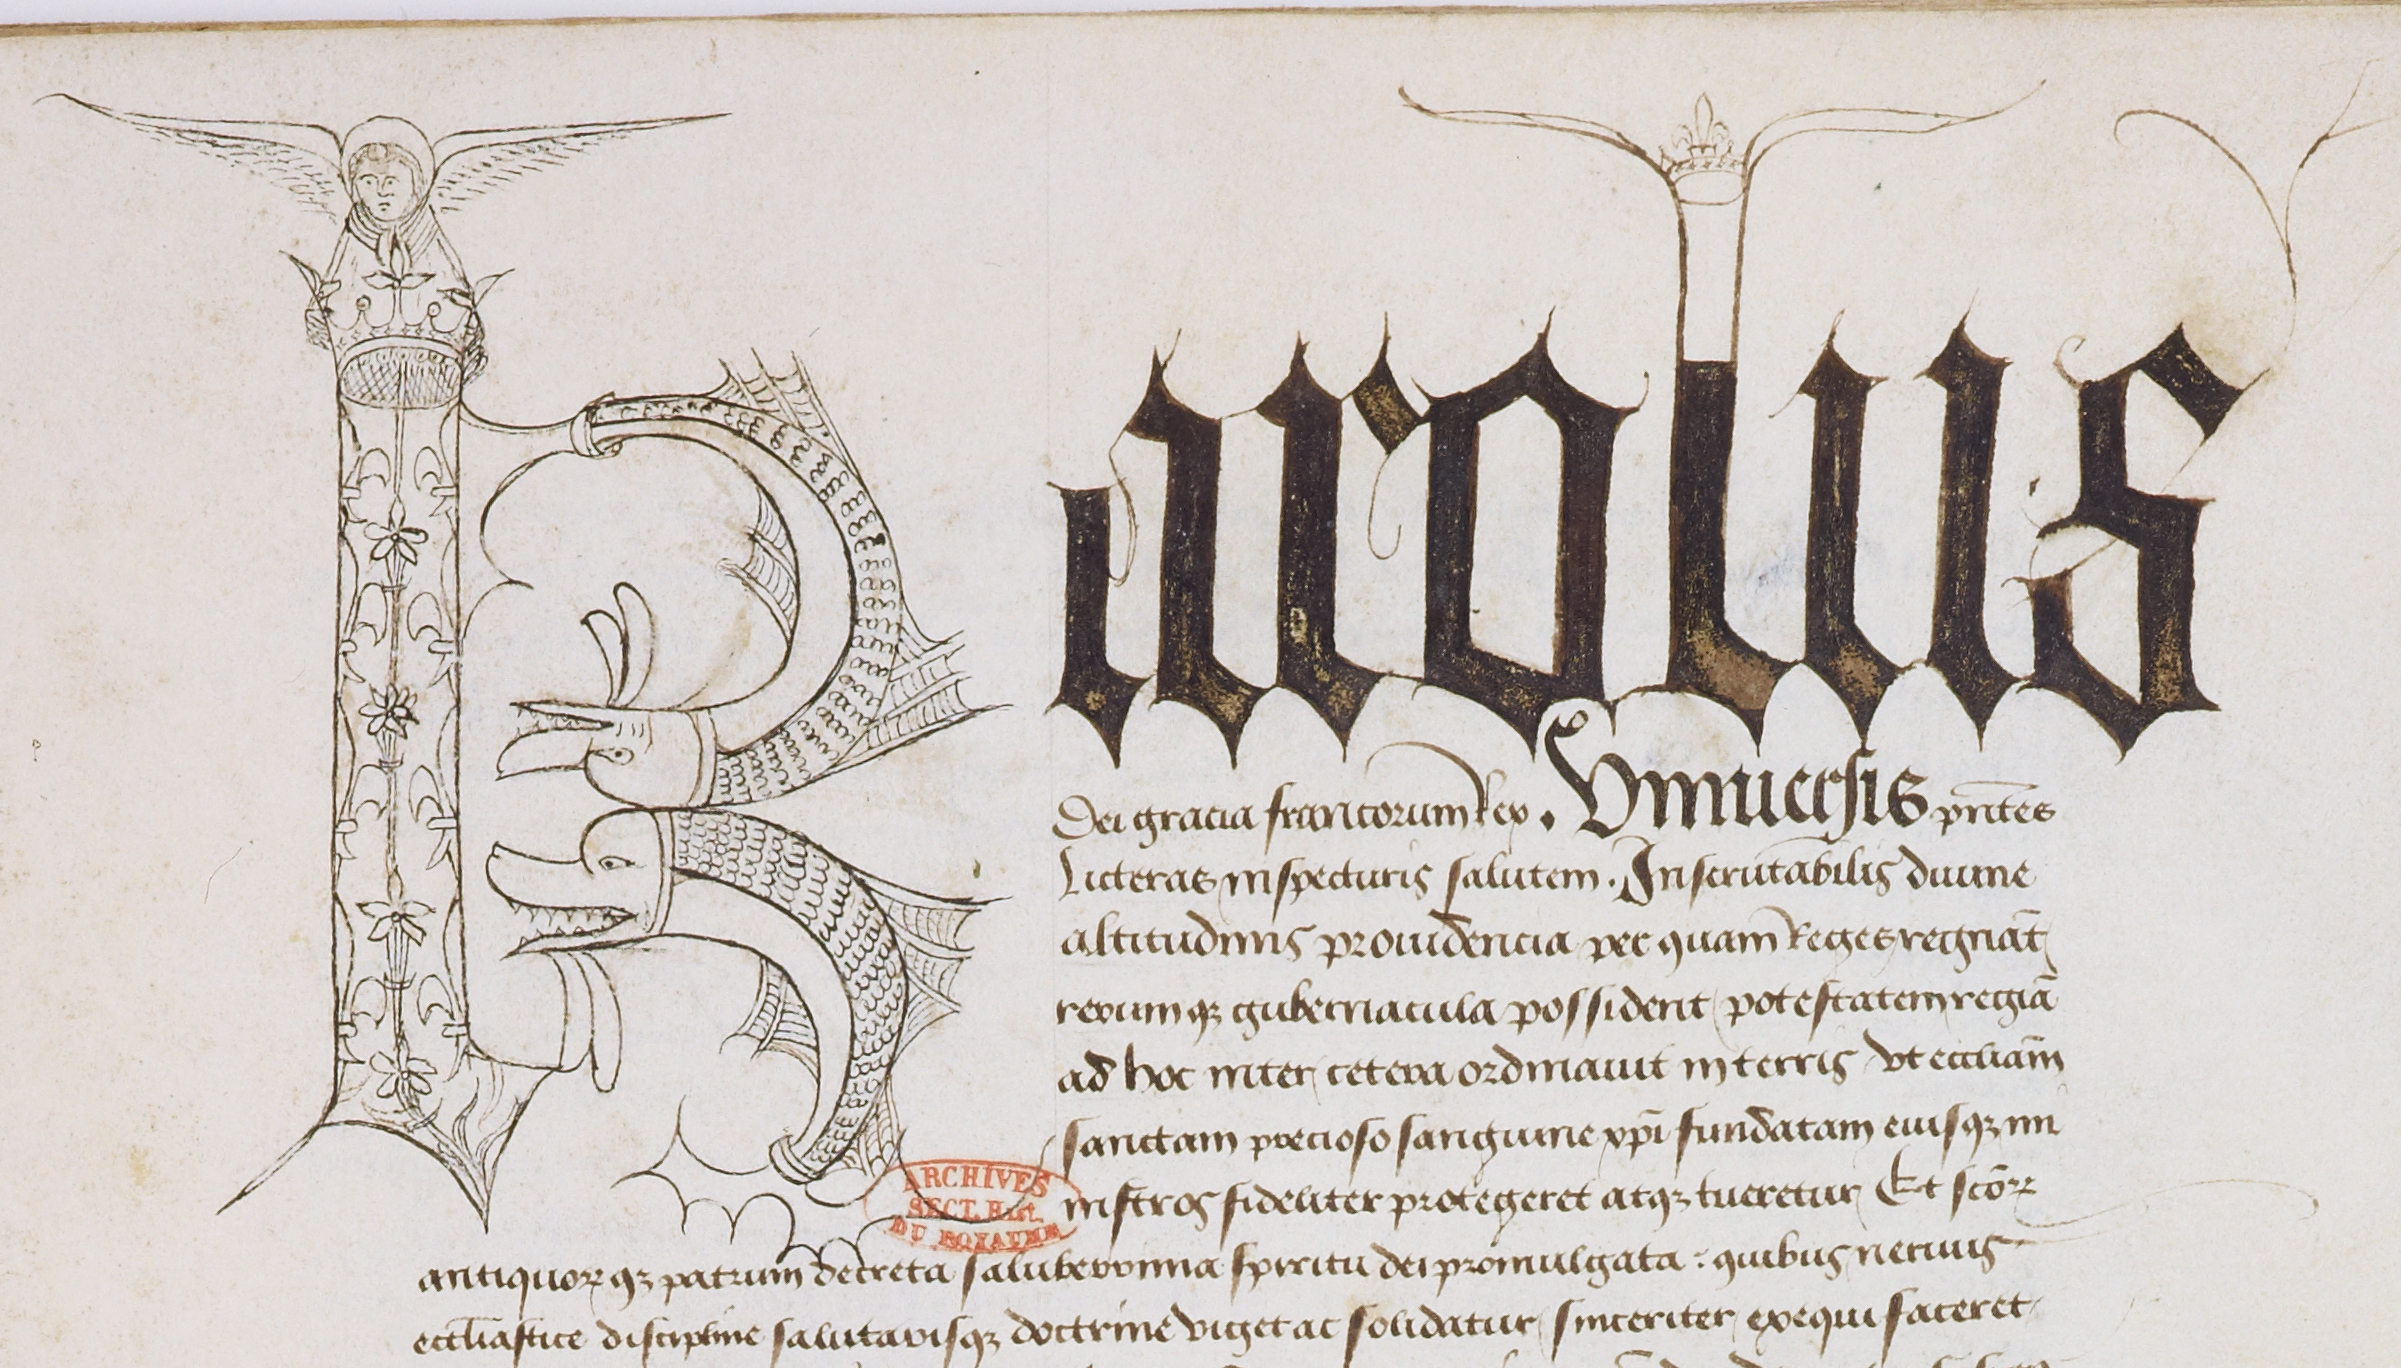 Karolus
Dei gracia francorum Rex. Vniuersis pñtes
Litteras inspecturis salutem. Inscrutabilis diuine
altitudinis prouidencia per quam Reges regnāt
rerumqꝫ gubernacula possident potestatem regiā
ad hoc inter cetera ordinauit in terris vt eccliam̄
sanctam precioso sanguine xp̄i fundatam eiusqꝫ mi
nistros fideliter protegeret atqꝫ tueretur Et sc̄oꝝ
antiquoꝝqꝫ patrum decreta saluberrima spiritu dei promulgata : quibus neruus
eccl̄iastice discipline salutarisqꝫ doctrine viget ac solidatur sinceriter exequi faceret
ARCHIVES
SECT. Hist.
DU ROYAUME